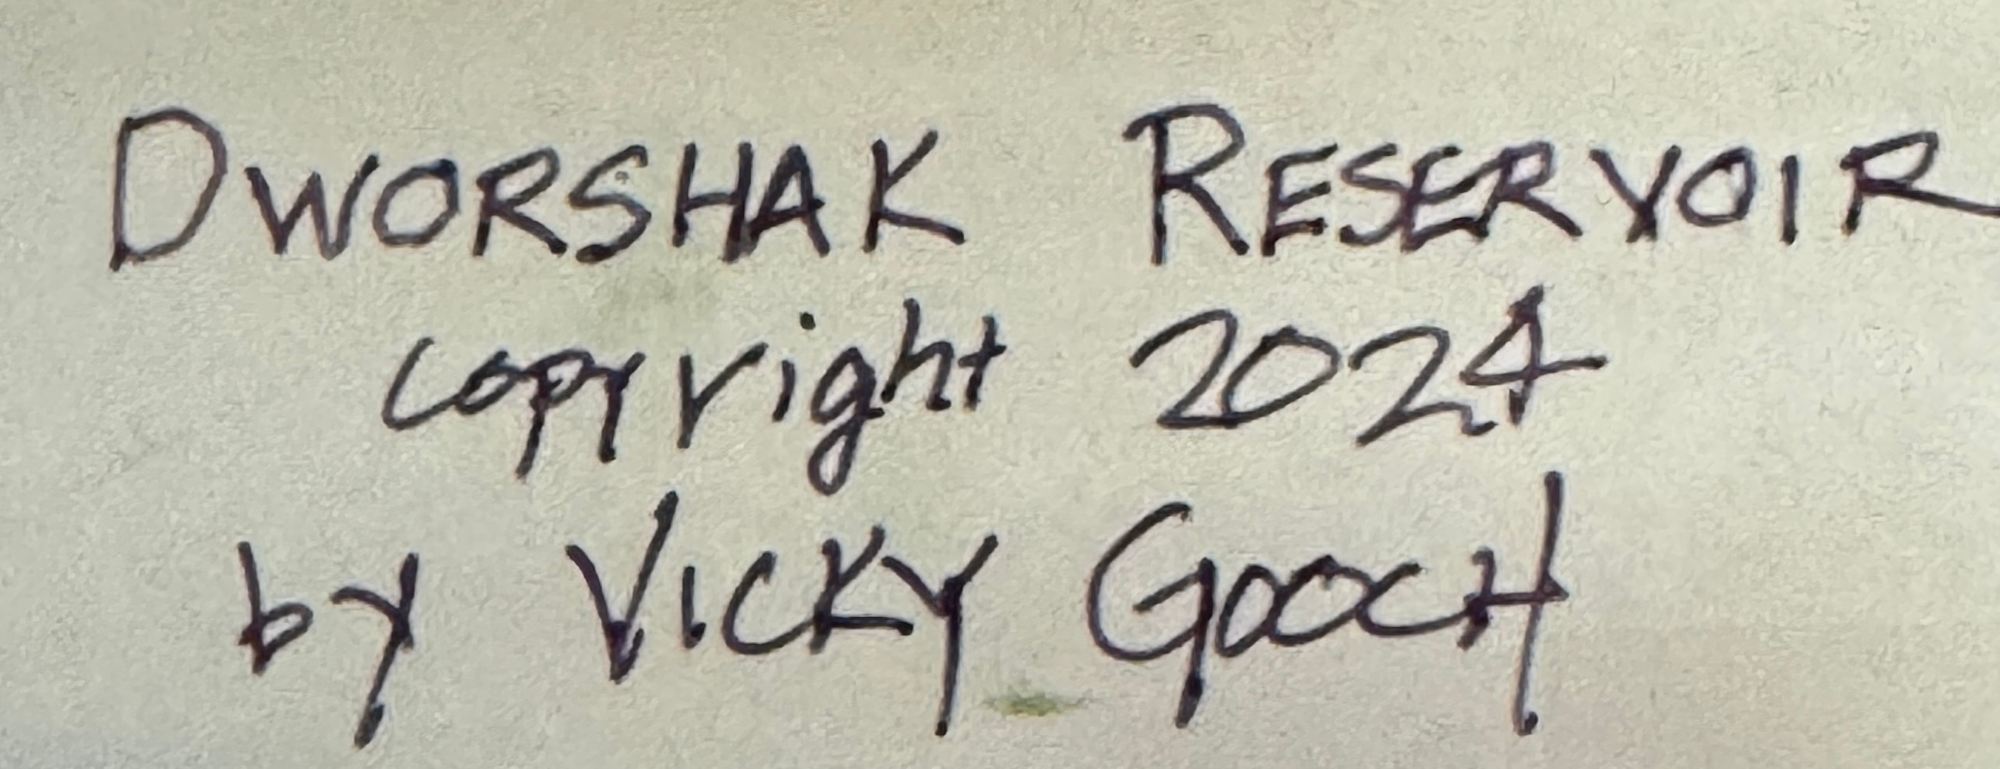 DWORSHAK RESERVOIR
copyright 2024
by VICKY GOOCH